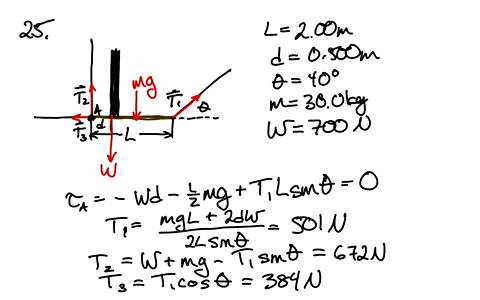 25.
L = 2.00m
d = 0.500m
θ = 40°
m = 30.0kg
W = 700 N
mg
T⃗₂
T⃗₁
θ
A
d
T⃗₃
L
W
τ_A = - Wd - L/2 mg + T₁L sinθ = 0
T₁ = (mgL + 2dW)/(2L sinθ) = 501N
T₂ = W + mg - T₁ sinθ = 672N
T₃ = T₁cosθ = 384N